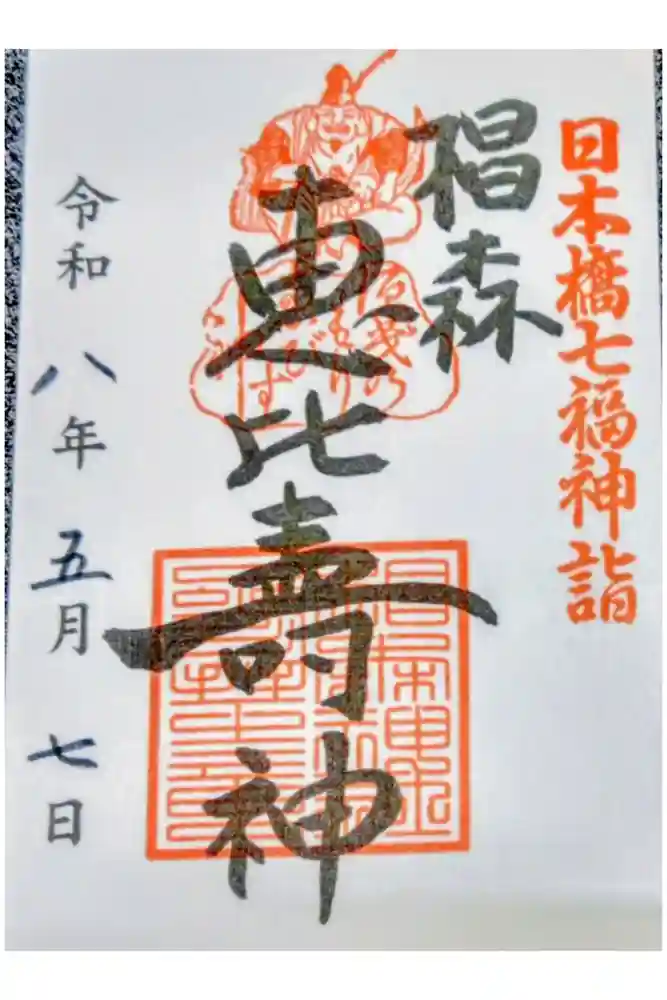 日本橋七福神詣
椙森
恵比寿神
令和八年五月七日